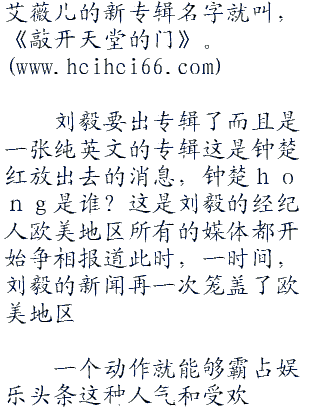 艾薇儿的新专辑名字就叫，
《敲开天堂的门》。
(www.hcihci66.com)
刘毅要出专辑了而且是
一张纯英文的专辑这是钟楚
红放出去的消息，钟楚ｈｏ
ｎｇ是谁？这是刘毅的经纪
人欧美地区所有的媒体都开
始争相报道此时，一时间，
刘毅的新闻再一次笼盖了欧
美地区
一个动作就能够霸占娱
乐头条这种人气和受欢